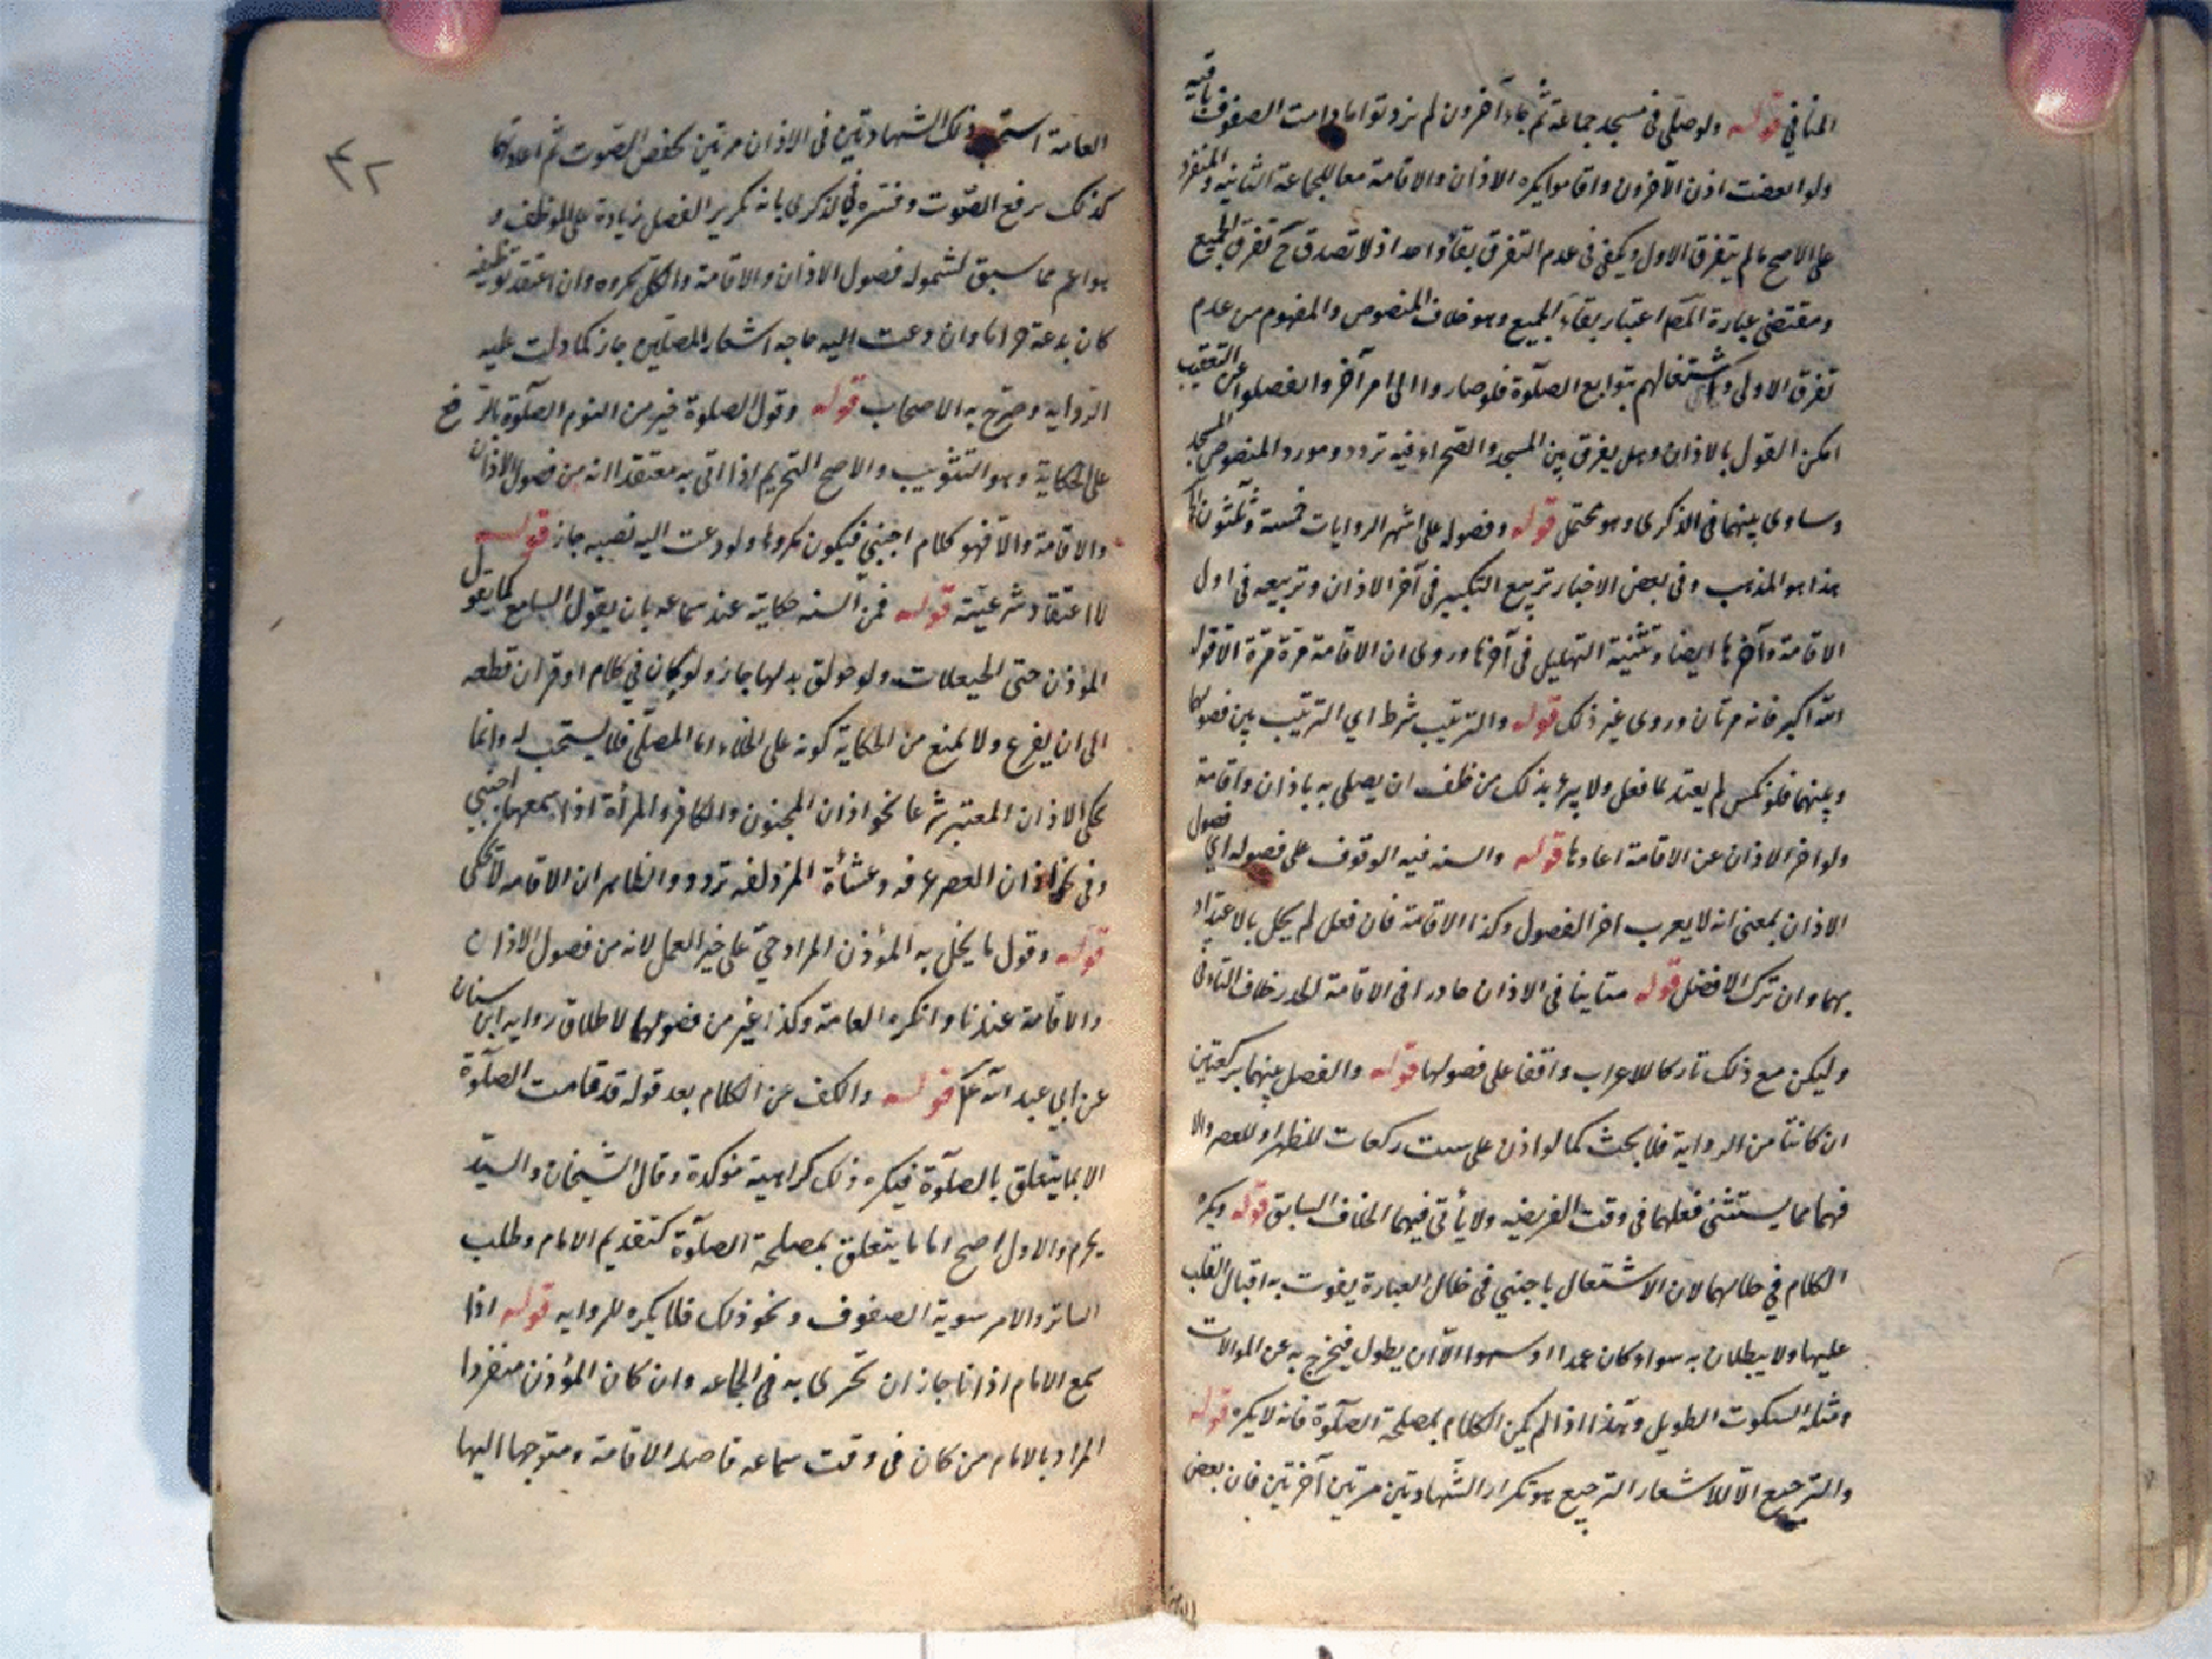 المنافي قوله ولو صلى في مسجد جماعة ثم جاء آخرون لم يؤذنوا ما دامت الصفوف باقية
ولو انفضت اذن الآخرون واقاموا يكره الاذان والاقامة معا للجماعة الثانية والمنفرد
على الاصح ما لم يتفرق الاول ويكفي في عدم التفرق بقاء واحد اذ لا تصدق ح تفرق الجميع
ومقتضى عبارة المصر اعتبار بقاء الجميع وهو خلاف المنصوص والمفهوم من عدم
تفرق الاولى واشتغالهم بتوابع الصلوة فلو صاروا الى امر آخر وانفصلوا عن التعقيب
امكن القول بالاذان وهل يفرق بين المسجد والصحراء فيه تردد ومورد المنصوص المسجد
وساوى بينهما في الذكرى وهو محتمل قوله وفصوله على اشهر الروايات خمسة وثلثون
هذا هو المذهب وفي بعض الاخبار تربيع التكبير في آخر الاذان وتربيعه في اول
الاقامة وآخرها ايضا وتثنية التهليل في آخرها وروى ان الاقامة مرة مرة الا قوله
الله اكبر فانه مرتان وروى غير ذلك قوله والترتيب شرط اي الترتيب بين فصولها
وبينهما فلو نكس لم يعتد بما فعل ولا يبرء بذلك من ظف ان يصلي به باذان واقامة
ولو اخر الاذان عن الاقامة اعادها قوله والسنه فيه الوقوف على فصوله اي فصول
الاذان بمعنى انه لا يعرب اخر الفصول وكذا الاقامة فان فعل لم يخل بالاعتداد
بهما وان ترك الافضل قوله متانيا في الاذان حادرا في الاقامة الحدر خلاف التاني
وليكن مع ذلك تاركا للاعراب واقفا على فصولها قوله والفصل بينهما بركعتين
ان كانتا من الرواية فلا بحث كما لو اذن على ست ركعات للظهر او للعصر والا
فهما مما يستثنى فعلهما في وقت الفريضه ولا يأتي فيهما الخلاف السابق قوله ويكره
الكلام في خلالهما لان الاشتغال باجنبي في خلال العبارة يفوت به اقبال القلب
عليها ولا يبطلان به سواء كان عمدا او سهوا الا ان يطول فيخرج به عن الموالات
ومثله السكوت الطويل وهذا اذا لم يكن الكلام بمصلحة الصلوة فانه لا يكره قوله
والترجيع الا للاشعار الترجيع هو تكرار الشهادتين مرتين آخرتين فان بعض
العامة استحب ذلك الشهادتين في الاذان مرتين بخفض الصوت ثم اعادتها
كذلك برفع الصوت وفسره في الذكرى بانه تكرير الفصل زيادة على الموظف و
هو اعم مما سبق لشموله فصول الاذان والاقامة والكل مكروه وان اعتقد توظيفه
كان بدعة حراما وان دعت اليه حاجه اشعار المصلين جاز كما دلت عليه
الروايه وصرح به الاصحاب قوله وقول الصلوة خير من النوم الصلوة بالرفع
على الحكاية وهو التثويب والاصح التحريم اذا اتى به معتقدا انه من فصول الاذان
والاقامة والا فهو كلام اجنبي فيكون مكروها ولو دعت اليه تقيه جاز قوله
لا اعتقاد شرعيته قوله فمن السنه حكايته عند سماعه بان يقول السامع كما يقول
الموذن حتى الحيعلات ولو حولق بدلها جاز ولو كان في كلام او قران قطعه
الى ان يفرغ ولا يمنع من الحكاية كونه على الخلاء اما المصلي فلا يستحب له وانما
يحكى الاذان المعتبر شرعا نحو اذان المجنون والكافر والمرأة اذا سمعها اجنبي
وفي اذان العصر عرفه وعشاة المزدلفه تردد والظاهر ان الاقامه لا تحكى
قوله وقول ما يخل به المؤذن المراد حي على خير العمل لانه من فصول الاذان
والاقامة عندنا وانكره العامة وكذا غيره من فصولهما لاطلاق روايه ابن سنان
عن ابي عبد الله ع قوله والكف عن الكلام بعد قوله قد قامت الصلوة
الا بما يتعلق بالصلوة فيكره ذلك كراهية مؤكدة وقال الشيخان والسيد
يحرم والاول اصح اما ما يتعلق بمصلحة الصلوة كتقديم الامام وطلب
الساتر والامر بسوية الصفوف ونحو ذلك فلا يكره للروايه قوله اذا
سمع الامام اذانا جاز ان تجرى به في الجماعه وان كان المؤذن منفردا
المراد بالامام من كان في وقت سماعه قاصدا الاقامة ومتوجها اليها